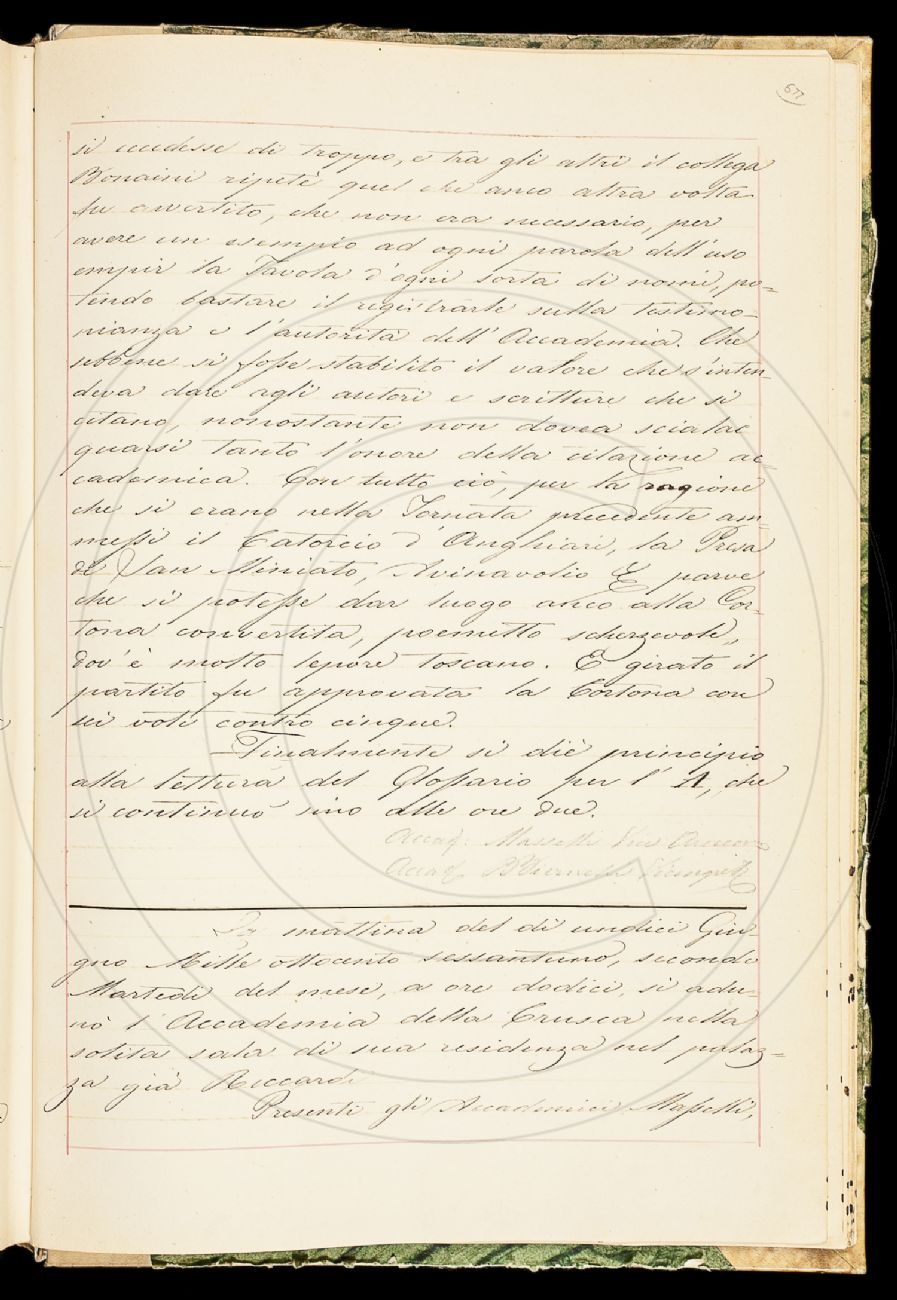 677
si eccedesse di troppo, e tra gli altri il collega
Bonaini ripetè quel che anco altra volta
fu avvertito, che non era necessario, per
avere un esempio ad ogni parola dell'uso
empir la Tavola d'ogni sorta di nomi, po=
tendo bastare il registrarle sulla testimo=
nianza e l'autorità dell'Accademia. Che
sebbene si fosse stabilito il valore che s'inten=
deva dare agli autori e scritture che si
citano, nonostante non dovea scialac
quarsi tanto l'onore della citazione ac=
cademica. Con tutto ciò, per la ragione
che si erano nella Tornata precedente am=
messi il Catorcio d'Anghiari, la Presa
di San Miniato, Avinavolio &, parve
che si potesse dar luogo anco alla Cor=
tona convertita, poemetto scherzevole,
dov'è molto lepore toscano. E girato il
partito fu approvata la Cortona con
sei voti contro cinque.
Finalmente si diè principio
alla lettura del Glossario per l'A, che
si continuò sino alle ore due.
Accad. Masselli Vice
Accad.
La mattina del dì undici Giu=
gno Mille ottocento sessantuno, secondo
Martedì del mese, a ore dodici, si adu=
nò l'Accademia della Crusca nella
solita sala di sua residenza nel palaz=
zo già Riccardi
Presenti gli Accademici Masselli,